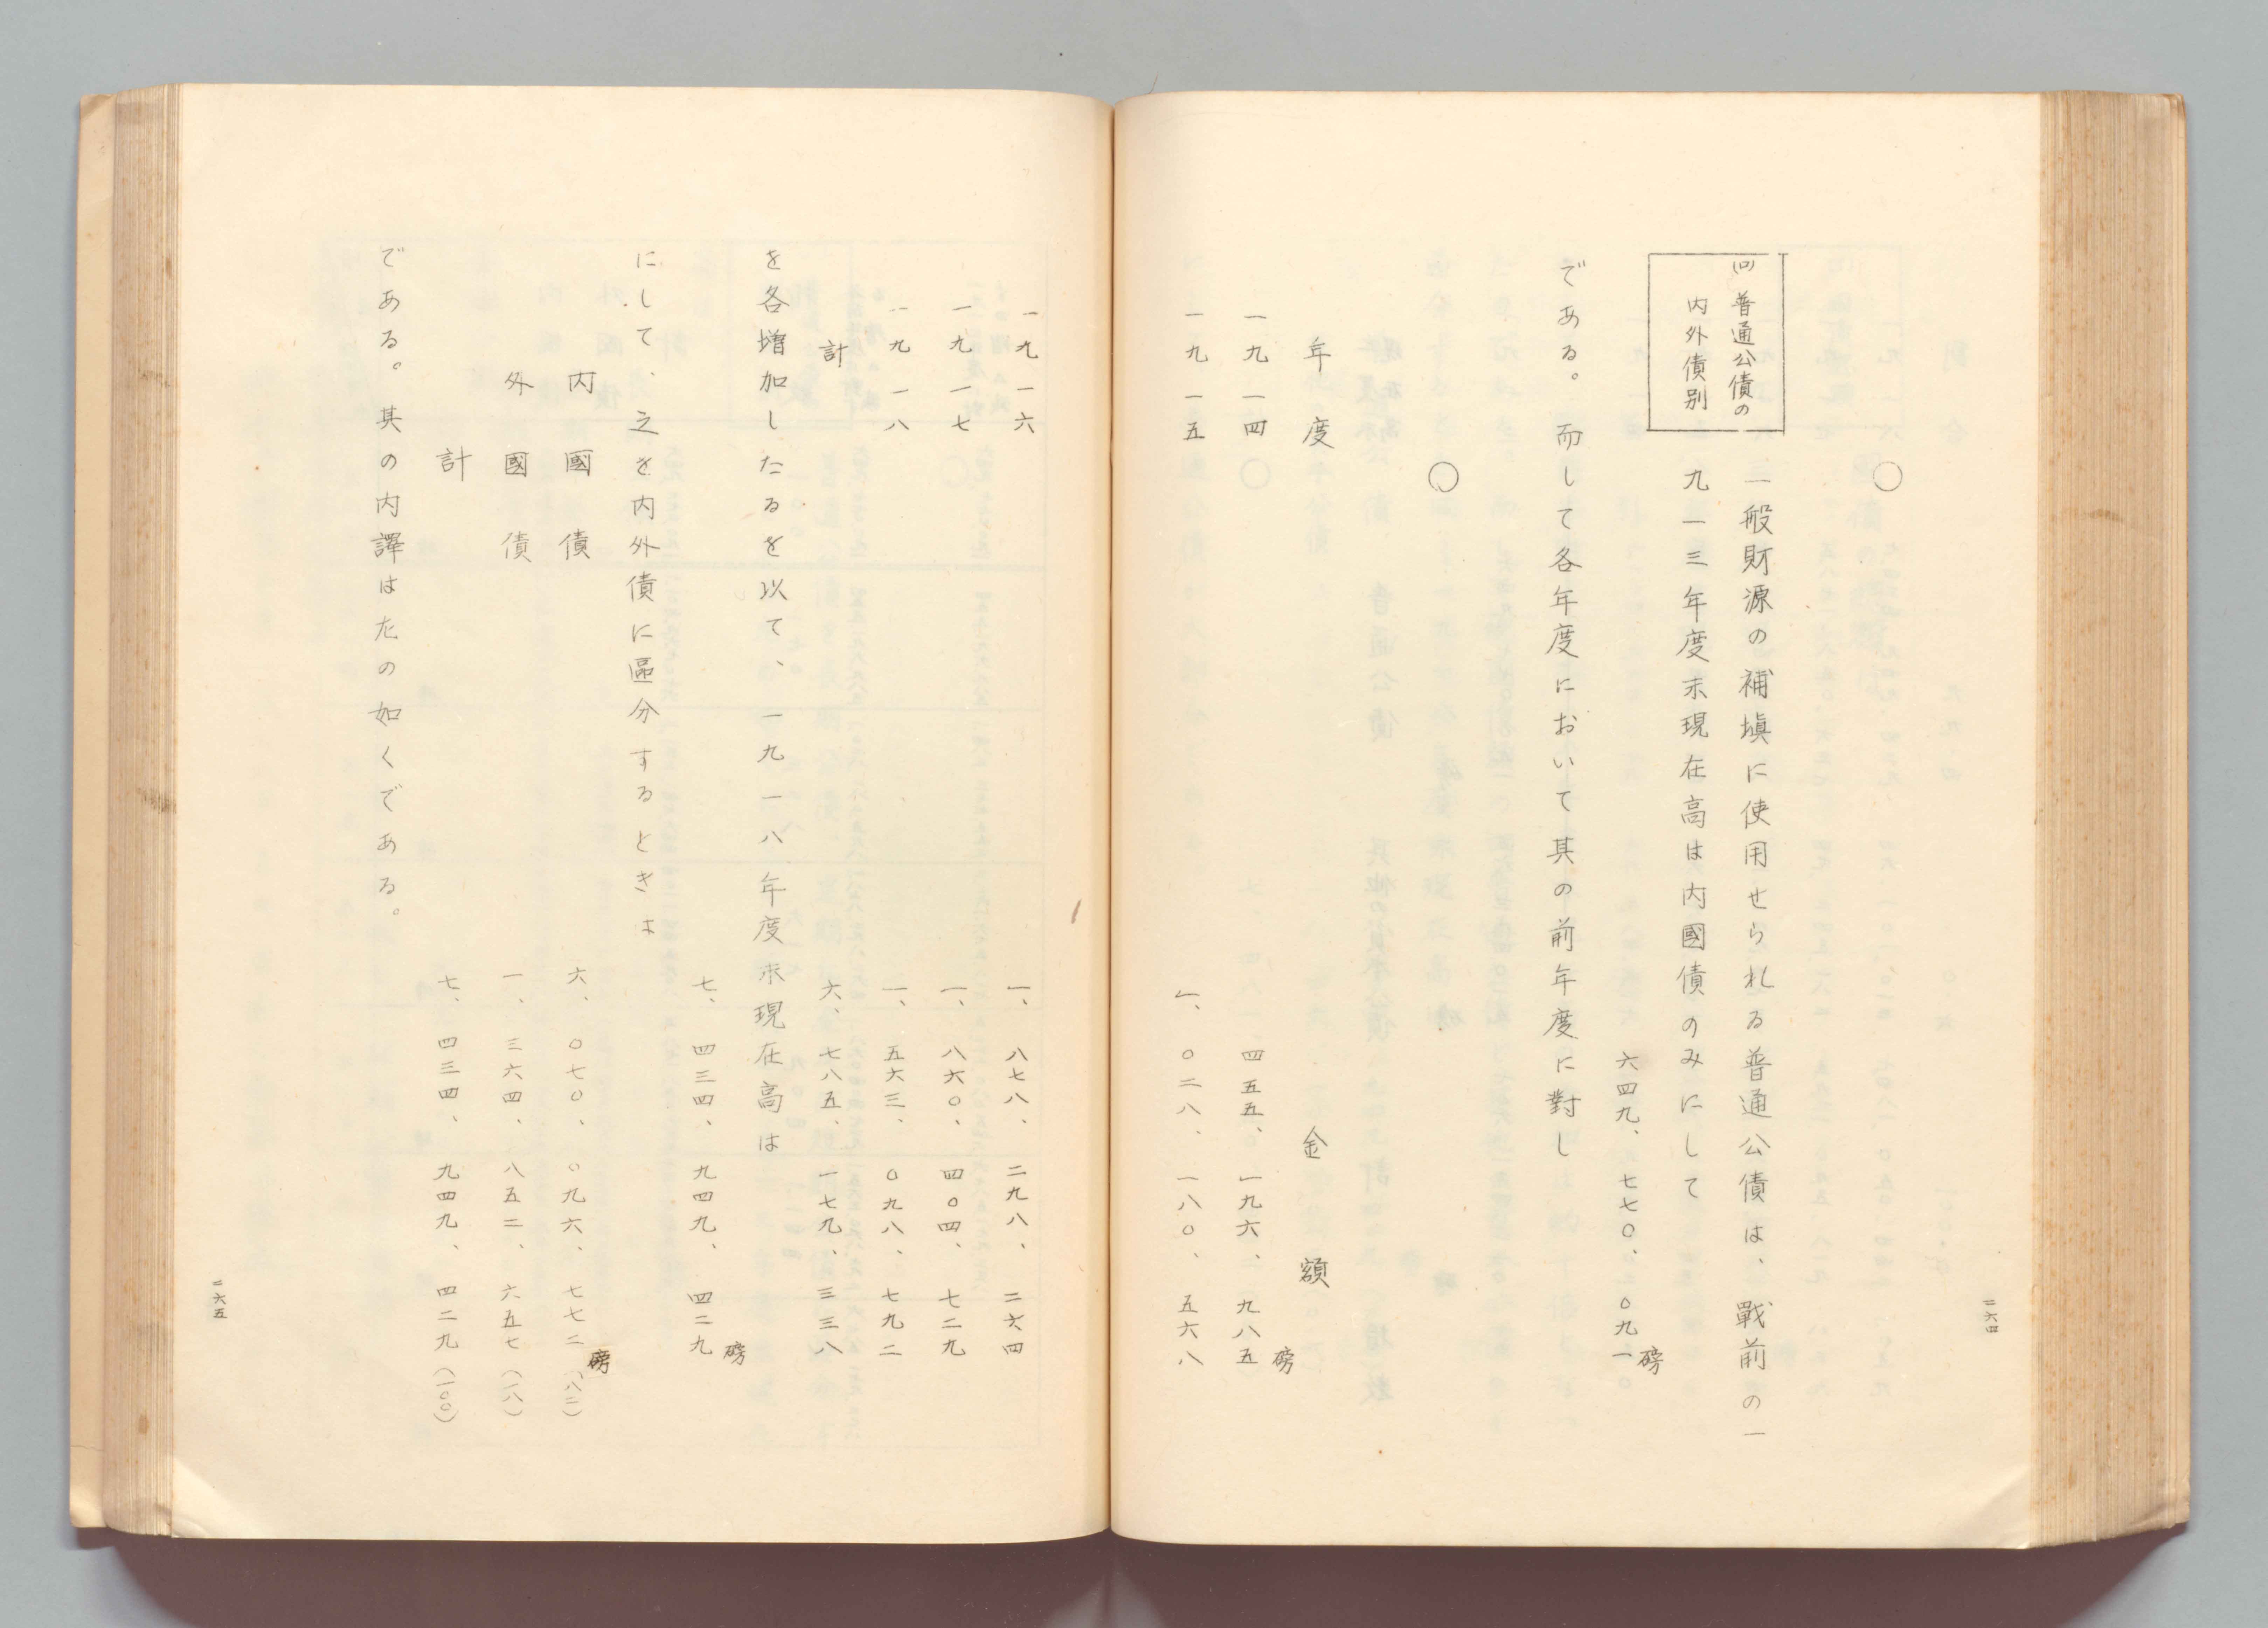 二六四
○
(ロ) 普通公債の
内外債別
一般財源の補塡に使用せられる普通公債は、戰前の一
九一三年度末現在高は内國債のみにして
磅
六四九、七七〇、〇九一
である。而して各年度において其の前年度に對し
○
年度 金額
磅
一九一四 四五五、一九六、九八五
一九一五 一、〇二八、一八〇、五六八
一九一六 一、八七八、二九八、二六四
一九一七 一、八六〇、四〇四、七二九
一九一八 一、五六三、〇九八、七九二
計 六、七八五、一七九、三三八
を各增加したるを以て、一九一八年度末現在高は
磅
七、四三四、九四九、四二九
にして、之を内外債に區分するときは
磅
内國債 六、〇七〇、〇九六、七七二(八二)
外國債 一、三六四、八五二、六五七(一八)
計 七、四三四、九四九、四二九(一〇〇)
である。其の内譯は左の如くである。
二六五